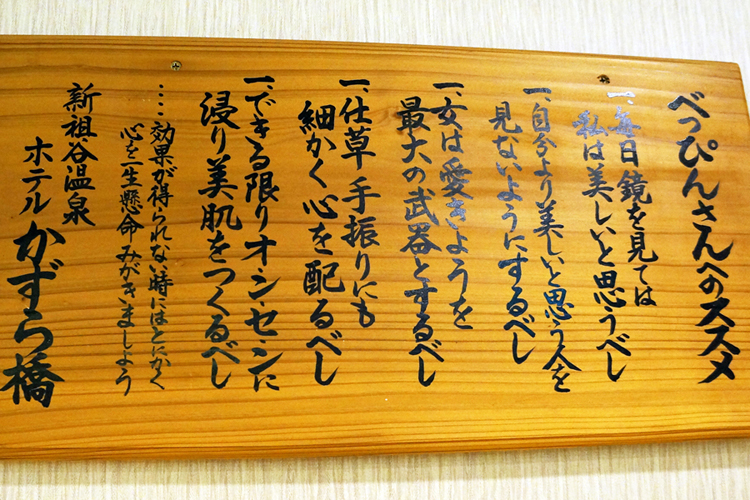 べっぴんさんへのススメ
一、毎日鏡を見ては
私は美しいと思うべし
一、自分より美しいと思う人を
見ないようにするべし
一、女は愛きようを
最大の武器とするべし
一、仕草、手振りにも
細かく心を配るべし
一、できる限りオンセンに
浸り美肌をつくるべし
‥‥効果が得られない時にはとにかく
心を一生懸命みがきましよう
新祖谷温泉
ホテルかずら橋